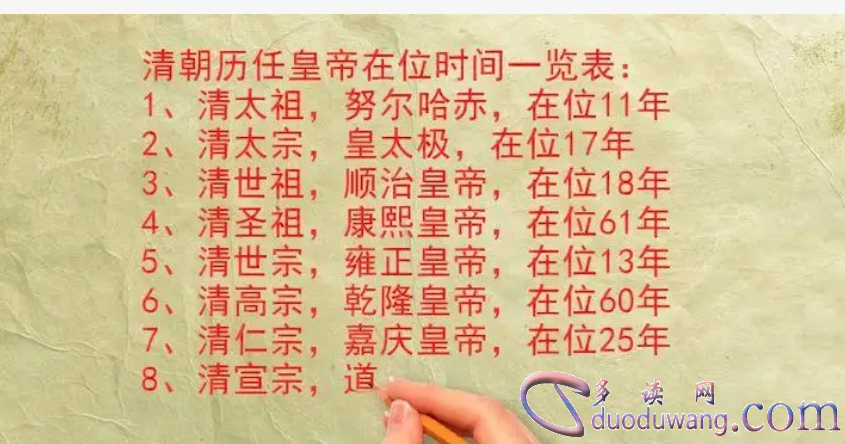 清朝历任皇帝在位时间一览表：
1、清太祖，努尔哈赤，在位11年
2、清太宗，皇太极，在位17年
3、清世祖，顺治皇帝，在位18年
4、清圣祖，康熙皇帝，在位61年
5、清世宗，雍正皇帝，在位13年
6、清高宗，乾隆皇帝，在位60年
7、清仁宗，嘉庆皇帝，在位25年
8、清宣宗，道
多读网
duoduwang.com